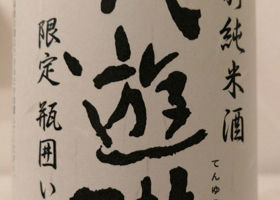 純米酒
てんゆ
遊
限定 瓶囲い